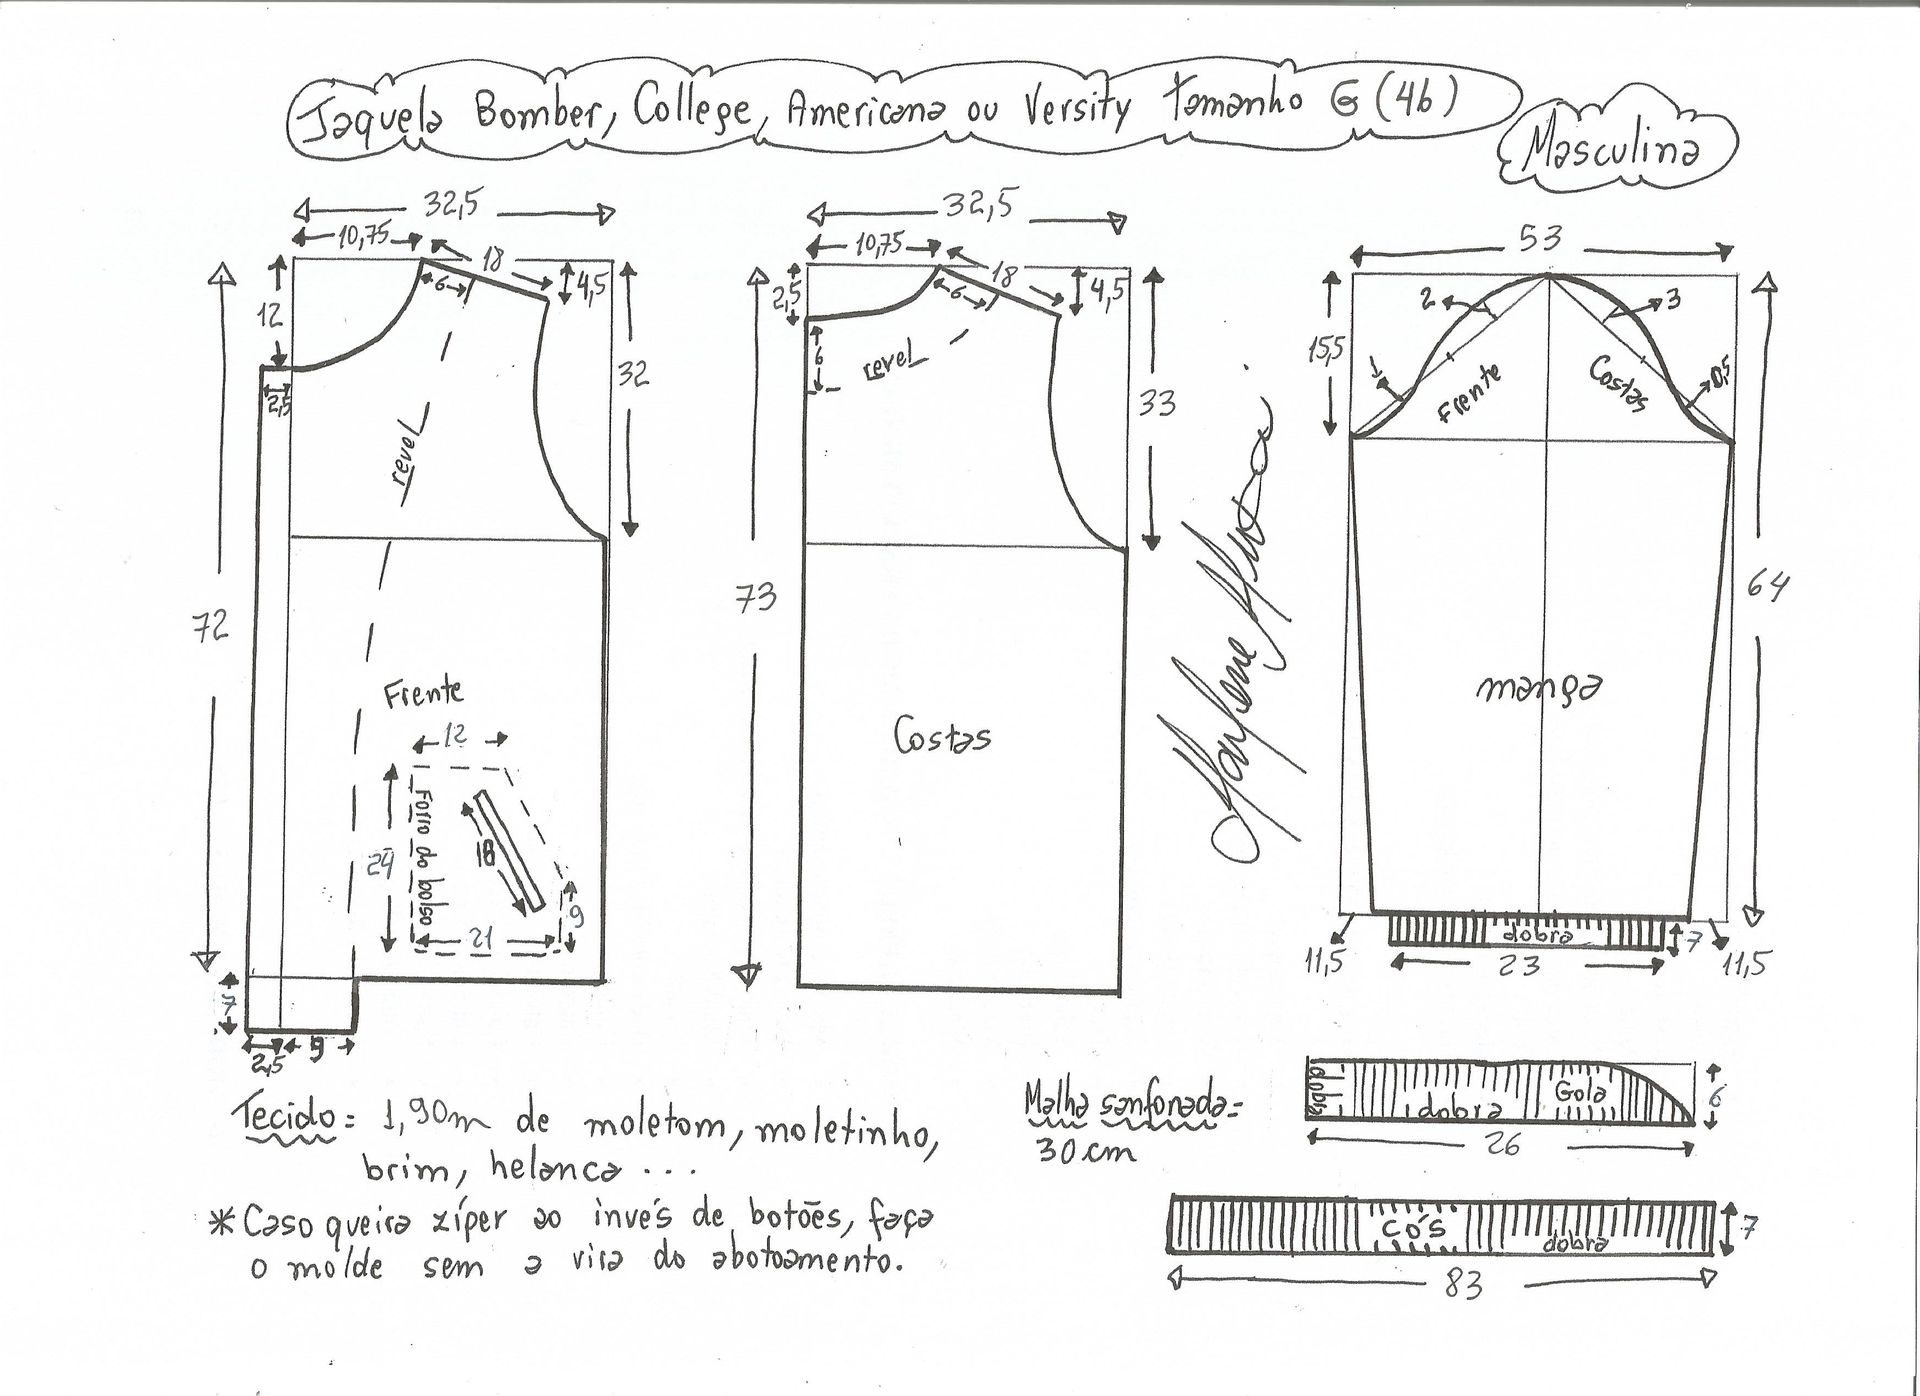 Jaqueta Bomber, College, Americana ou Versity Tamanho G (46)
Masculina
32,5
10,75
18
6
4,5
12
2,5
32
revel
72
Frente
12
24
Forro do bolso
18
9
21
7
2,5
9
32,5
10,75
18
6
4,5
2,5
6
revel
33
73
Costas
53
2
3
15,5
1
0,5
Frente
Costas
64
manga
dobra
7
11,5
23
11,5
Tecido = 1,90m de moletom, moletinho,
brim, helanca ...
* Caso queira zíper ao invés de botões, faça
o molde sem a vira do abotoamento.
Malha sanfonada =
30 cm
dobra
dobra
Gola
6
26
cós
dobra
7
83